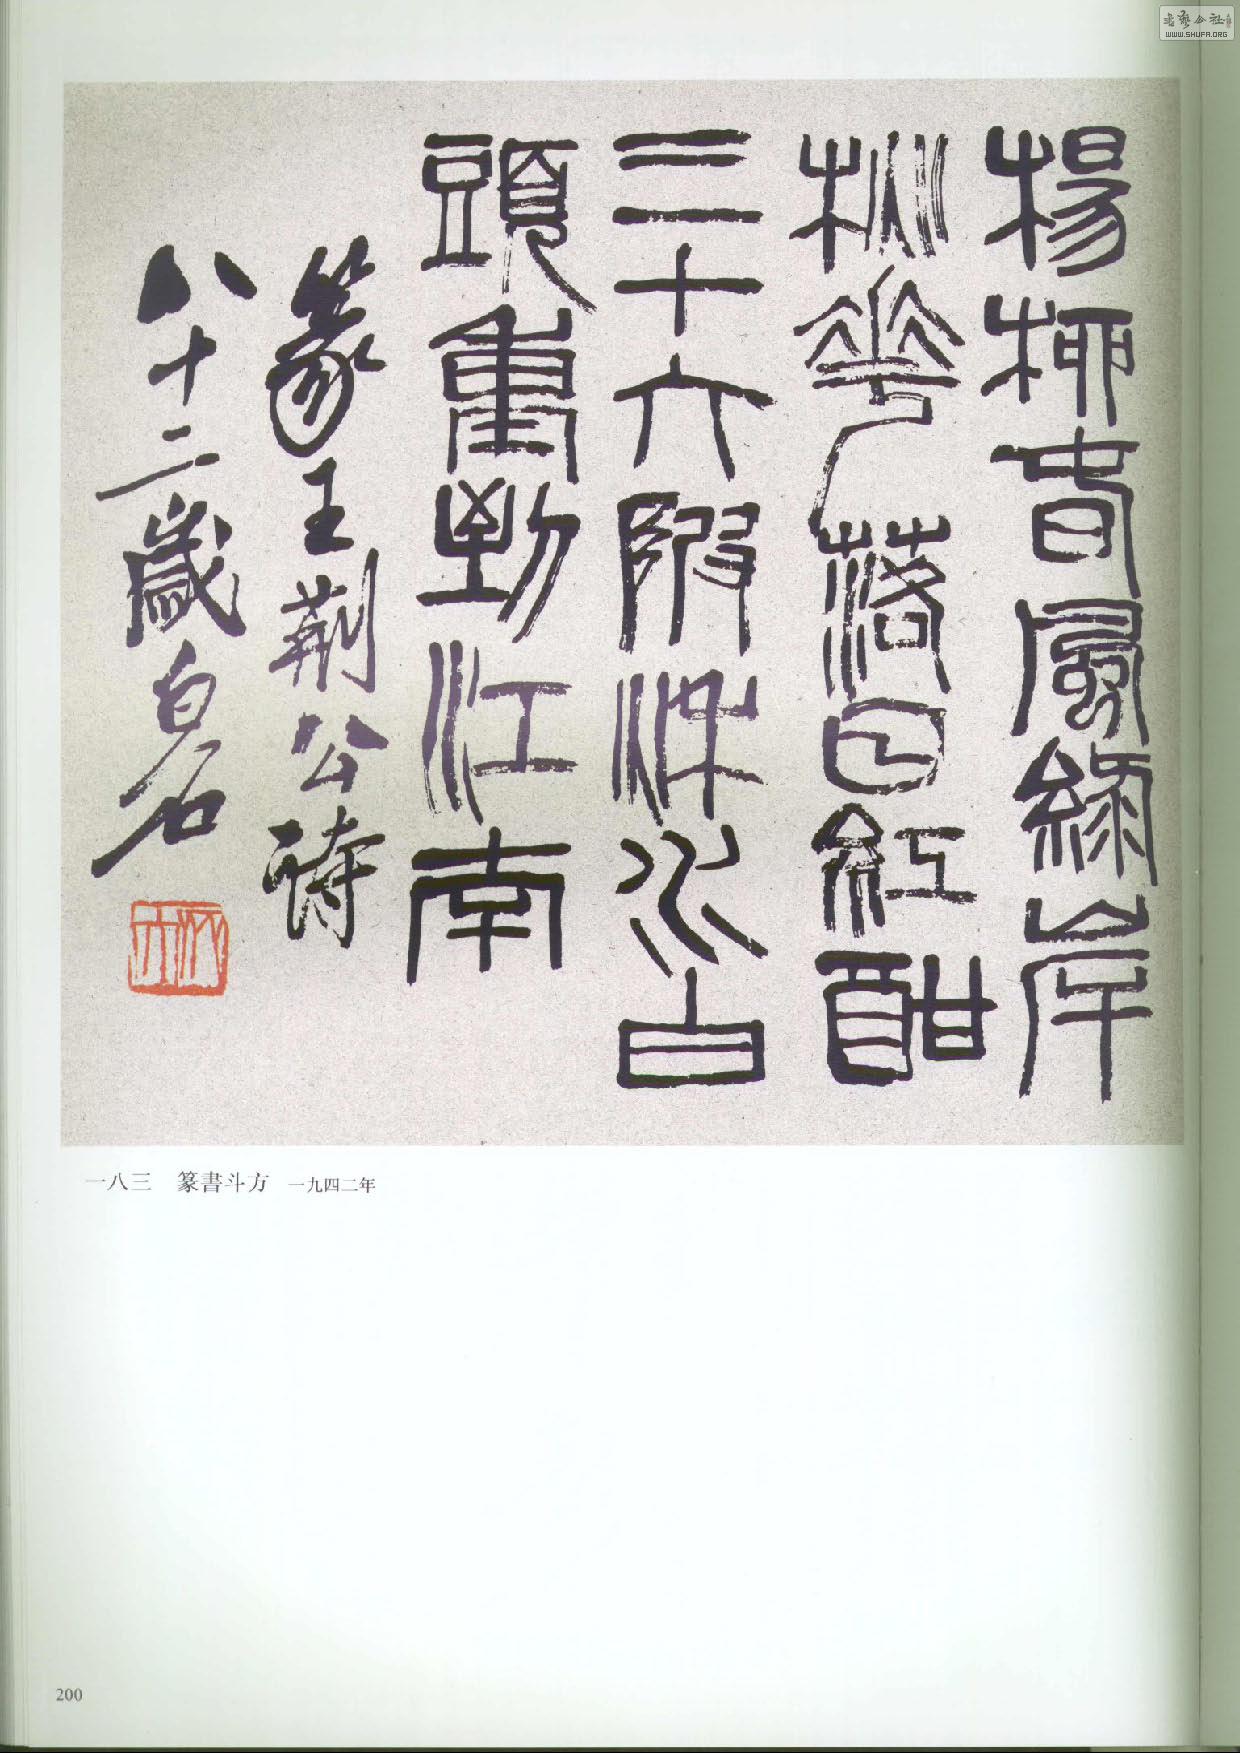 楊柳春風綠岸
桃花落日紅酣
三十六陂流水白
頭重到江南
篆王荊公詩
八十二歲白石
一八三 篆書斗方 一九四二年
200
WWW.SHUFA.ORG